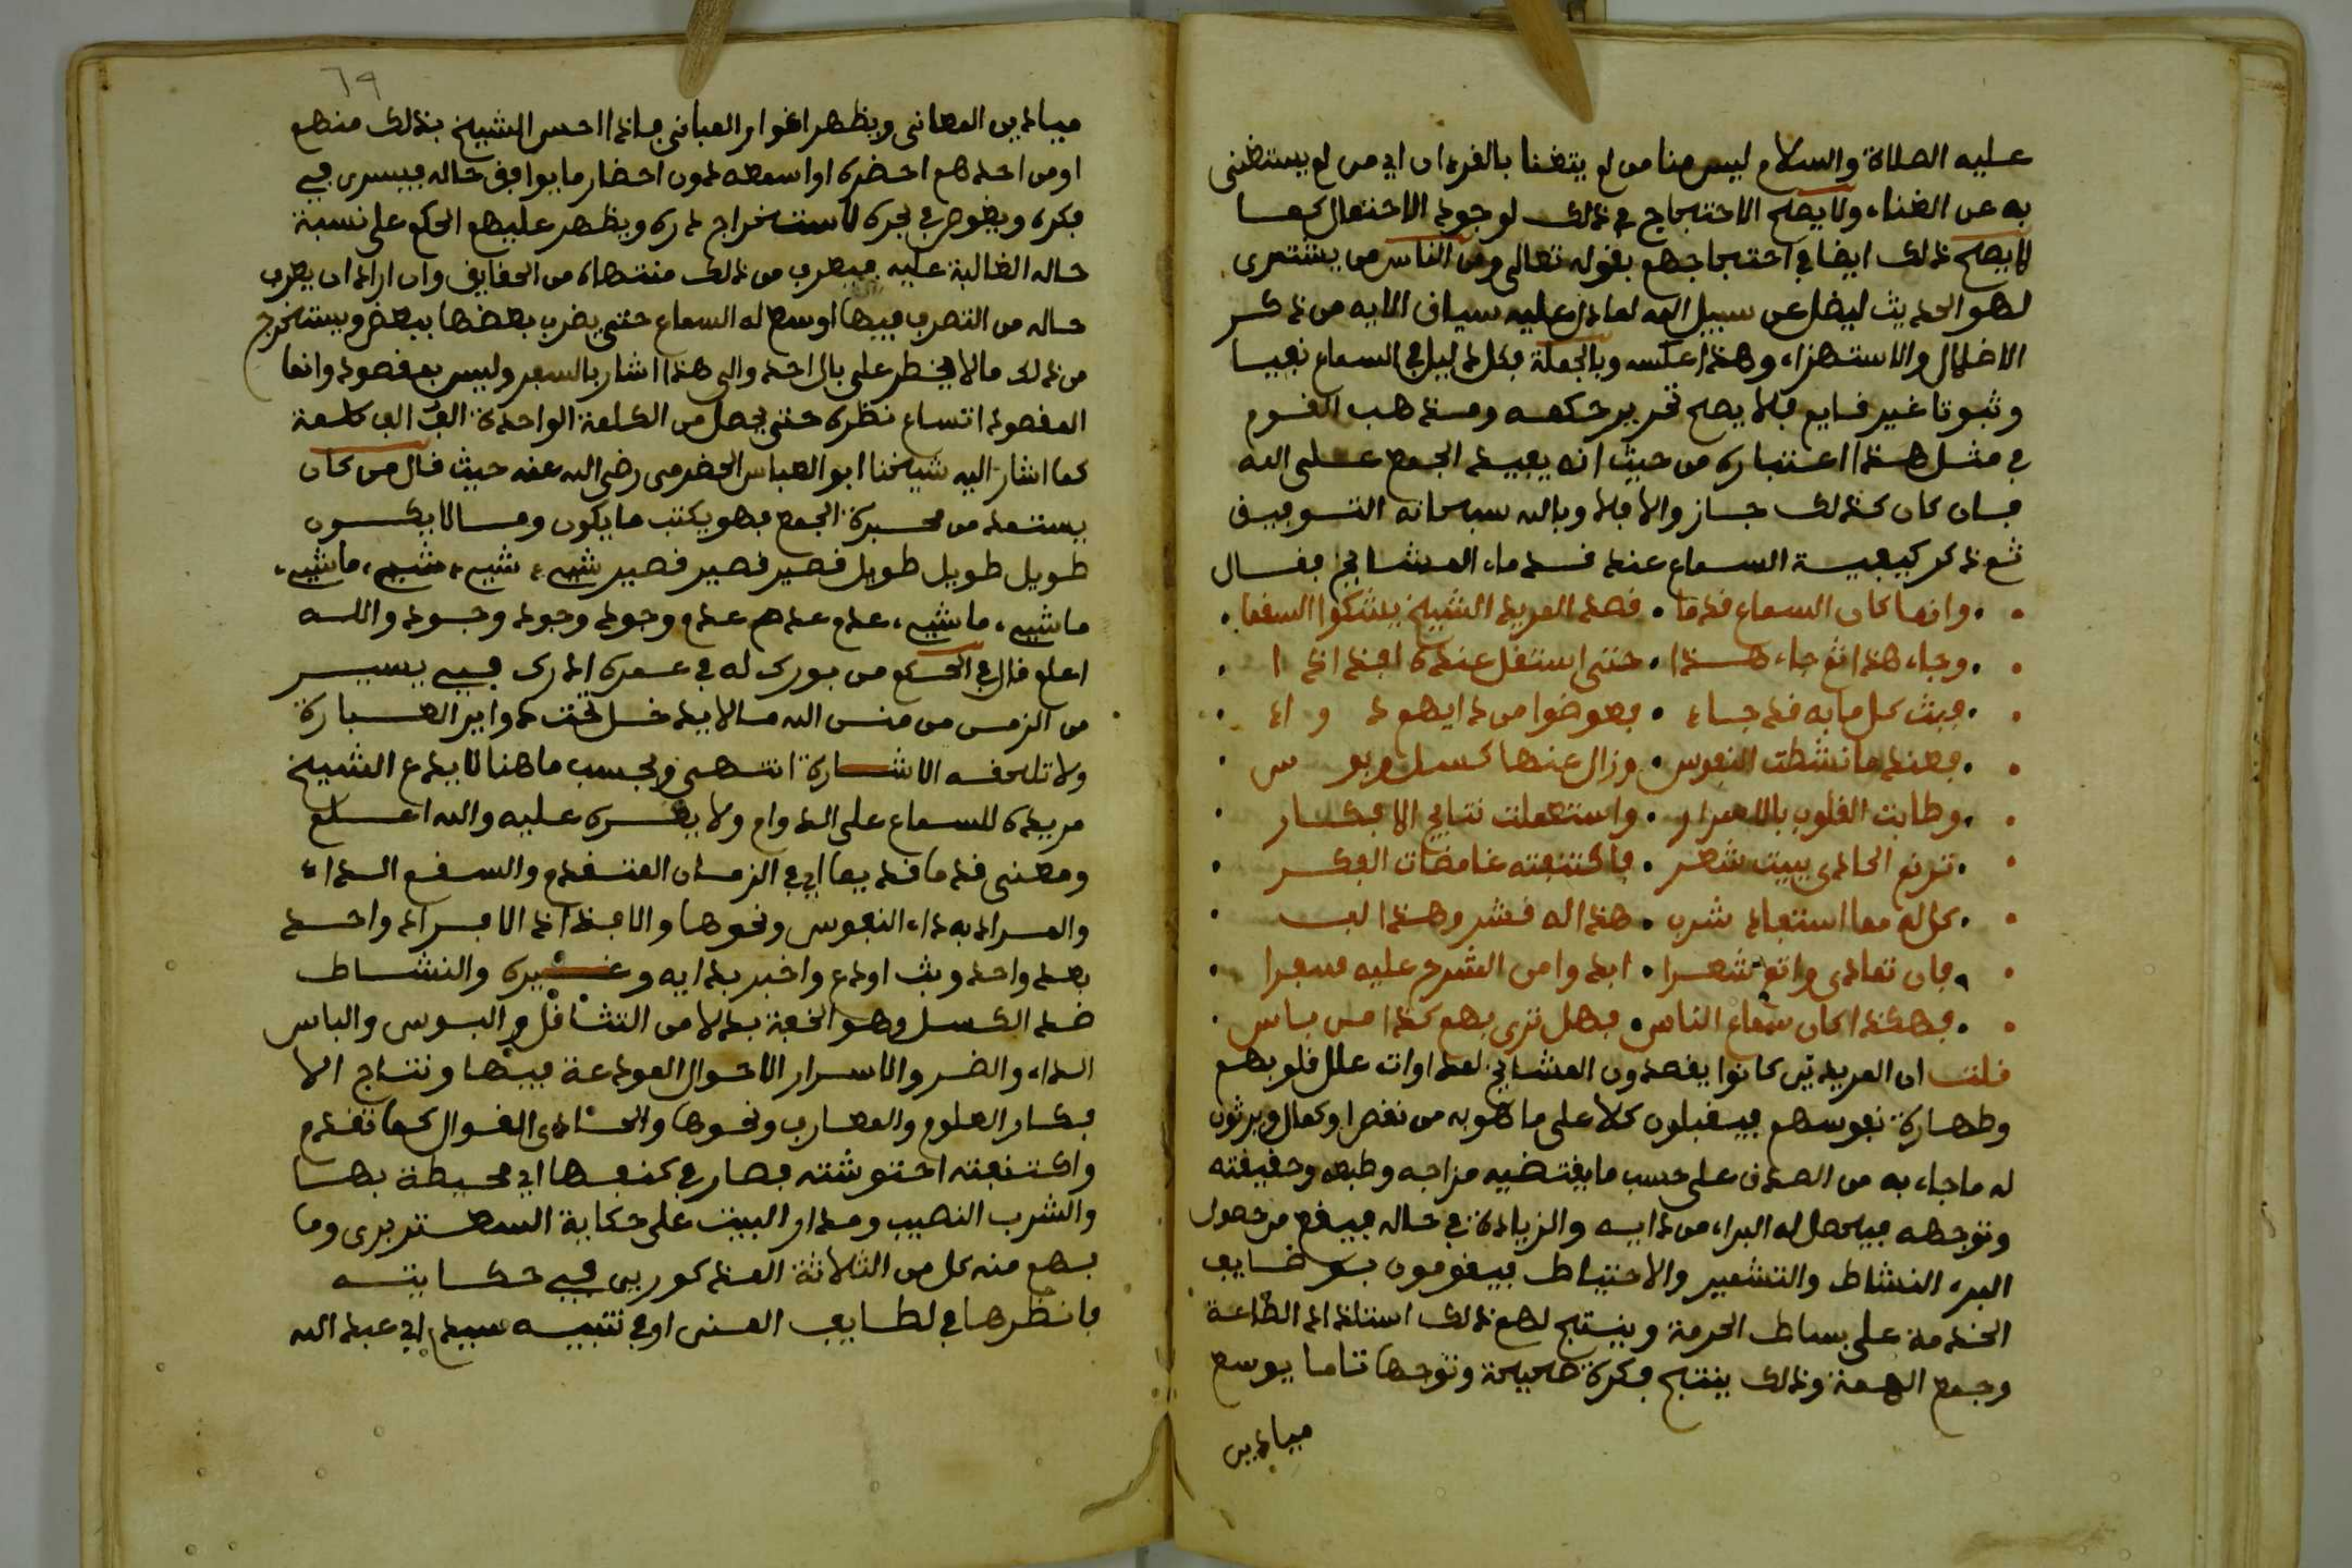 عليه الصلاة والسلام ليس منا من لم يتغنا بالقرءان اي من لم يستغنى
به عن الغناء ولا يصح الاحتجاج في ذلك لوجود الاحتمال كما
لا يصح ذلك ايضا في احتجاجهم بقوله تعالى ومن الناس من يشتري
لهو الحديث ليضل عن سبيل الله لما دل عليه سياق الايه من ذكر
الاضلال والاستهزاء وهذا عكسه وبالجملة فكل دليل في السماع نفيا
وثبوتا غير قايم فلا يصح تحرير حكمه ومذهب القوم
في مثل هذا اعتباره من حيث انه يفيد الجمع على الله
فان كان كذلك جاز والا فلا وبالله سبحانه التوفيق
ثم ذكر كيفية السماع عند قدماء المشايخ فقال
وانما كان السماع قدما . قصد المريد الشيخ يشكوا السقما
وجاء هذا ثم جاء هذا . حتى استقل عنده افذاذا
فبث كل ما به قد جاء . فعوضوا من دايهم دواء
فعندما نشطت النفوس . وزال عنها كسل وبوس
وطابت القلوب بالاسرار . واستعملت نتايج الافكار
ترنم الحادي ببيت شعر . فاكتنفته غامضات الفكر
كل له مما استفاد شرب . هذا له قشر وهذا لب
فان تمادى واتم شعرا . ابدوا من الشرح عليه سفرا
فهكذا كان سماع الناس . فهل ترى بهم كذا من باس
قلت ان المريدين كانوا يقصدون المشايخ لمداوات علل قلوبهم
وطهارة نفوسهم فيقبلون كلا على ما هو به من نقص او كمال ويرثون
له ما جاء به من الصدق على حسب ما يقتضيه مزاجه وطبعه وحقيقته
وتوجهه فيحصل له البراء من دايه والزيادة في حاله فيقع من حصول
البرء النشاط والتشمير والاحتياط فيقومون بوضايف
الخدمة على بساط الحرمة وينتج لهم ذلك استلذاذ الطاعة
وجمع الهمة وذلك ينتج فكرة صحيحة وتوجها تاما يوسع
ميادين
٦٩
ميادين المعاني ويظهر اغوار المباني فاذا احس الشيخ بذلك منهم
او من احدهم احضره او اسمعه دون احضار ما يوافق حاله فيسري في
فكره ويغوص في بحره لاستخراج دره ويظهر عليهم الحكم على نسبة
حاله الغالبة عليه فيعرف من ذلك منتهاه من الحقايق وان اراد ان يعرف
حاله من التصرف فيها اوسع له السماع حتى يضرب بعضها ببعض ويستخرج
من ذلك ما لا يخطر على بال احد والى هذا اشار بالسفر وليس بمقصود وانما
المقصود اتساع نظره حتى يحصل من الكلمة الواحدة الف الف كلمة
كما اشار اليه شيخنا ابو العباس الحضرمي رضي الله عنه حيث قال من كان
يستمد من محبرة الجمع فهو يكتب ما يكون وما لا يكون
طويل طويل طويل قصير قصير قصير شيء شيء شيء ما شيء
ما شيء ما شيء عدم عدم عدم وجود وجود وجود والله
اعلم قال في الحكم من بورك له في عمره ادرك في يسير
من الزمن من منن الله ما لا يدخل تحت دواير العبارة
ولا تلحقه الاشارة انتهى وبحسب ما هنا لا يدع الشيخ
مريده للسماع على الدوام ولا يكره عليه والله اعلم
ومعنى قدما قديما اي في الزمان المتقدم والسقم الداء
والمراد به داء النفوس ونحوها والافذاذ الافراد واحد
بعد واحد وبث اودع واخبر بدايه وغيره والنشاط
ضد الكسل وهو الخفة بدلا من التثاقل والبوس والباس
الداء والضر والاسرار الاحوال المودعة فيها ونتاج الا
فكار العلوم والمعارف ونحوها والحادى القوال كما تقدم
واكتنفته احتوشته فصار في كنفها اي محيطة بها
والشرب النصيب ومدار البيت على حكاية السعتر بري وما
فهم منه كل من الثلاثة المذكورين في حكايته
فانظرها في لطايف المنن او في تنبيه سيدي ابي عبد الله